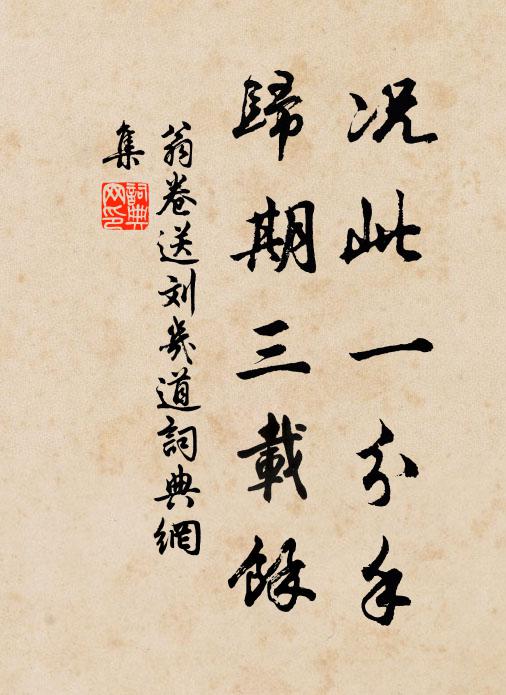 况此一分手
歸期三載餘
翁卷送刘幾道詞典網
集
詞典
网印